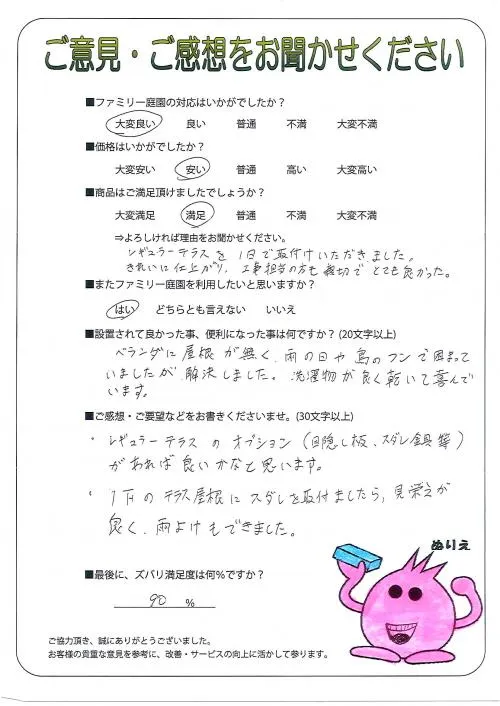 ご意見・ご感想をお聞かせください
■ファミリー庭園の対応はいかがでしたか？
大変良い　良い　普通　不満　大変不満
■価格はいかがでしたか？
大変安い　安い　普通　高い　大変高い
■商品はご満足頂けましたでしょうか？
大変満足　満足　普通　不満　大変不満
⇒よろしければ理由をお聞かせください。
レギュラーテラスを1日で取付けいただきました。
きれいに仕上がり、工事担当の方も親切でとても良かった。
■またファミリー庭園を利用したいと思いますか？
はい　どちらとも言えない　いいえ
■設置されて良かった事、便利になった事は何ですか？(20文字以上)
ベランダに屋根が無く、雨の日や鳥のフンで困って
いましたが解決しました。洗濯物が良く乾いて喜んで
います。
■ご感想・ご要望などをお書きくださいませ。(30文字以上)
・レギュラーテラスのオプション(目隠し板、スダレ金具等)
があれば良いかなと思います。
・1Fのテラス屋根にスダレを取付ましたら、見栄えが
良く、雨よけもできました。
ぬりえ
■最後に、ズバリ満足度は何％ですか？
90 %
ご協力頂き、誠にありがとうございました。
お客様の貴重な意見を参考に、改善・サービスの向上に活かして参ります。